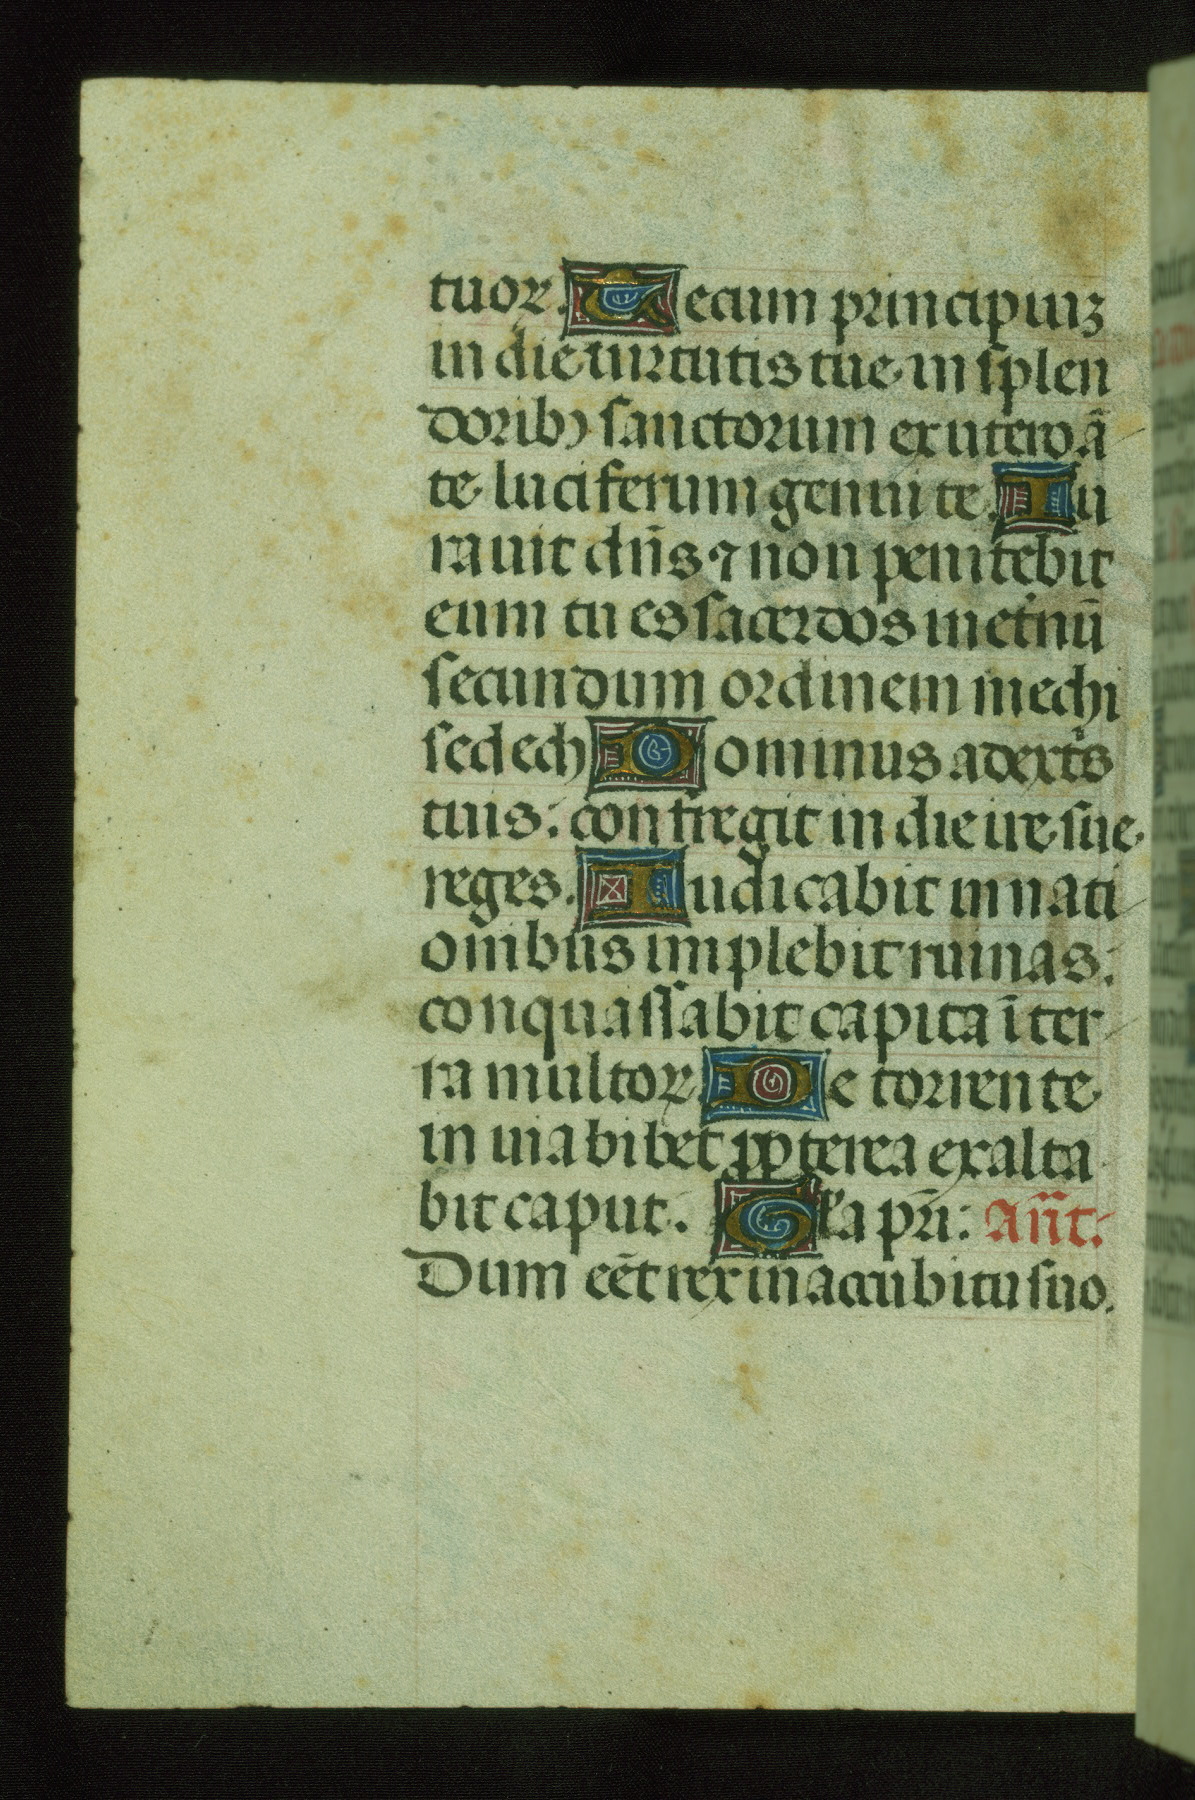 tuoꝝ. Tecum principiuꝫ
in die uirtutis tue in splen
doribꝯ sanctorum ex utero ā
te luciferum genui te. Iu
rauit dn̄s ⁊ non penitebit
eum tu es sacerdos in et̄nū
secundum ordinem melchi
sedech Dominus a dext̄s
tuis: confregit in die ire sue
reges. Iudicabit in nati
onibus implebit ruinas:
conquassabit capita ī ter
ra multoꝝ. De torrente
in uia bibet ꝓpterea exalta
bit caput. Gl̄a pr̄i: An̄t.
Dum eēt rex in accubitu suo.